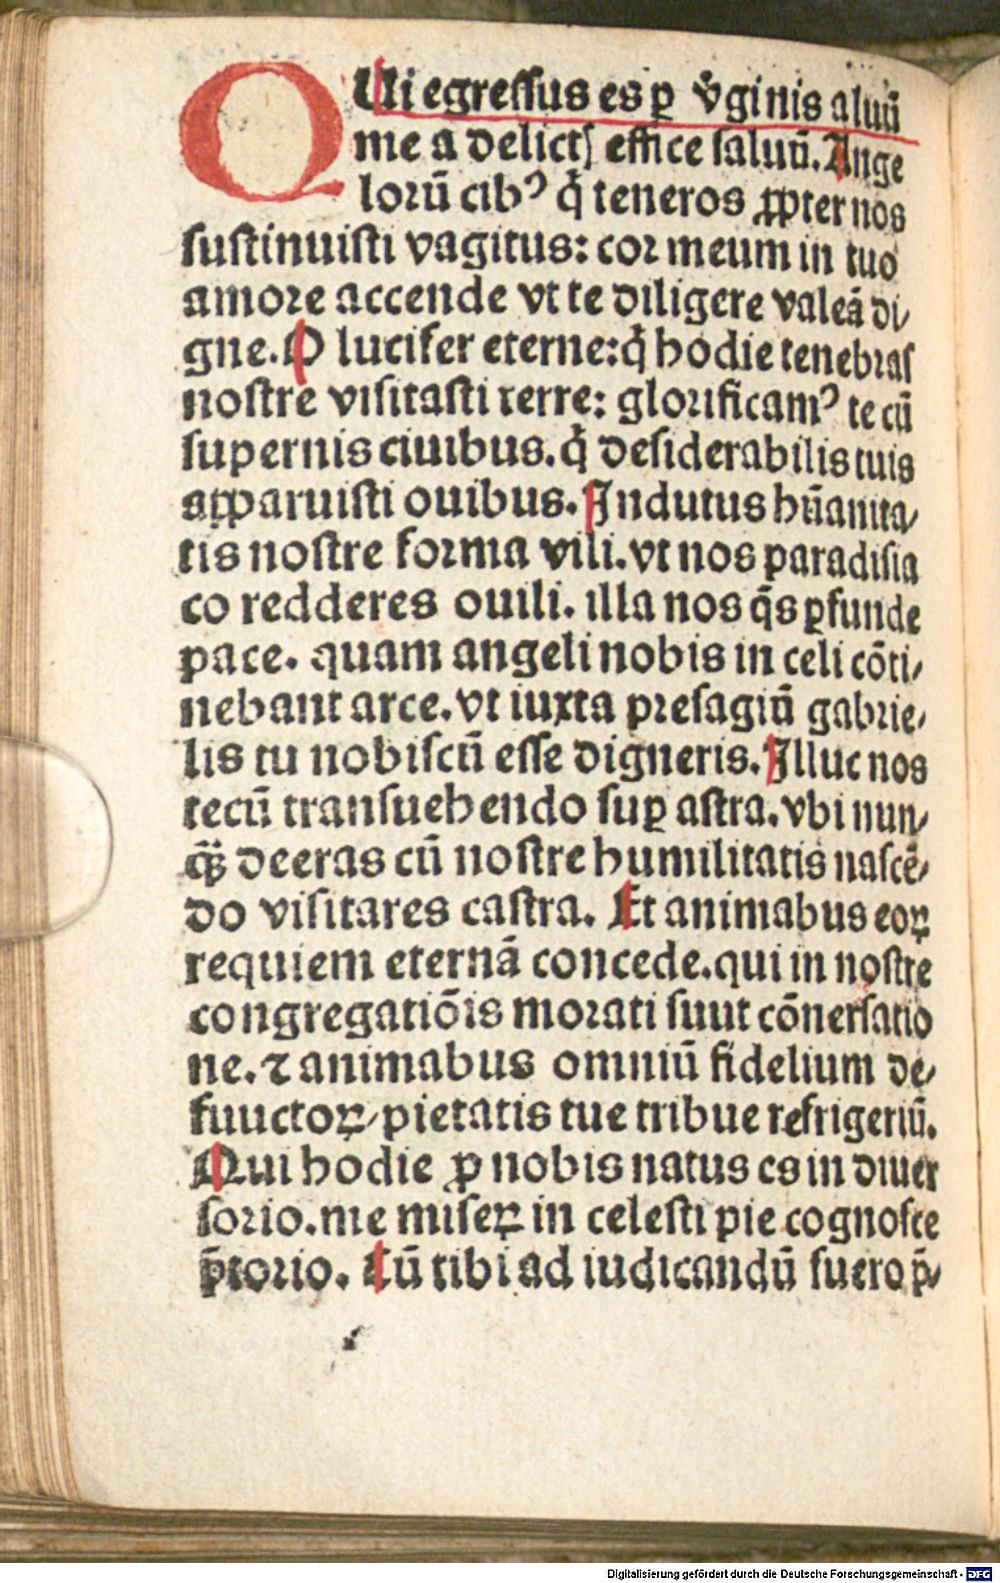 QUi egressus es ꝑ v̓ginis aluū
me a delictꝭ effice saluū. Ange
lorū cibꝰ q̇ teneros ꝓpter nos
sustinuisti vagitus: cor meum in tuo
amore accende vt te diligere valeā di⸗
gne. O lucifer eterne: q̇ hodie tenebras
nostre visitasti terre: glorificamꝰ te cū
supernis ciuibus. q̇ desiderabilis tuis
apparuisti ouibus. Indutus hūanita⸗
tis nostre forma vili. vt nos paradisia
co redderes ouili. illa nos q̄s ꝑfunde
pace. quam angeli nobis in celi cōti⸗
nebant arce. vt iuxta presagiū gabrie⸗
lis tu nobiscū esse digneris. Illuc nos
tecū transuehendo suꝑ astra. vbi nun⸗
qꝫ̄ deeras cū nostre humilitatis nascē⸗
do visitares castra. Et animabus eoꝝ
requiem eternā concede. qui in nostre
congregatiōis morati suut cōuersatio
ne. ⁊ animabus omniū fidelium de⸗
fuuctoꝝ/ pietatis tue tribue refrigeriū.
Qui hodie ꝓ nobis natus es in diuer
sorio. me miseꝝ in celesti pie cognosce
p̄torio. Cū tibi ad iudicandū fuero p̄⸗
Digitalisierung gefördert durch die Deutsche Forschungsgemeinschaft - DFG